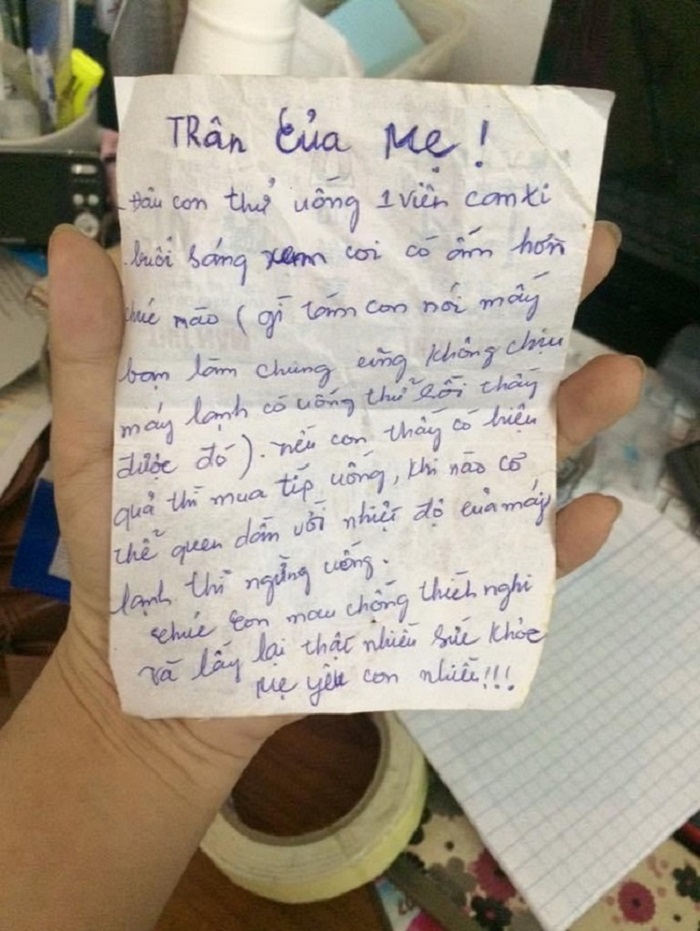 Trân của Mẹ!
- Đầu con thử uống 1 viên canxi
buổi sáng xem coi có ấm hơn
chút nào (gì Tám con nói mấy
bạn làm chung cũng không chịu
máy lạnh có uống thử rồi thấy
được đó). nếu con thấy có hiệu
quả thì mua tiếp uống, khi nào cơ
thể quen dần với nhiệt độ của máy
lạnh thì ngừng uống.
chúc con mau chống thích nghi
và lấy lại thật nhiều sức khỏe
Mẹ yêu con nhiều!!!